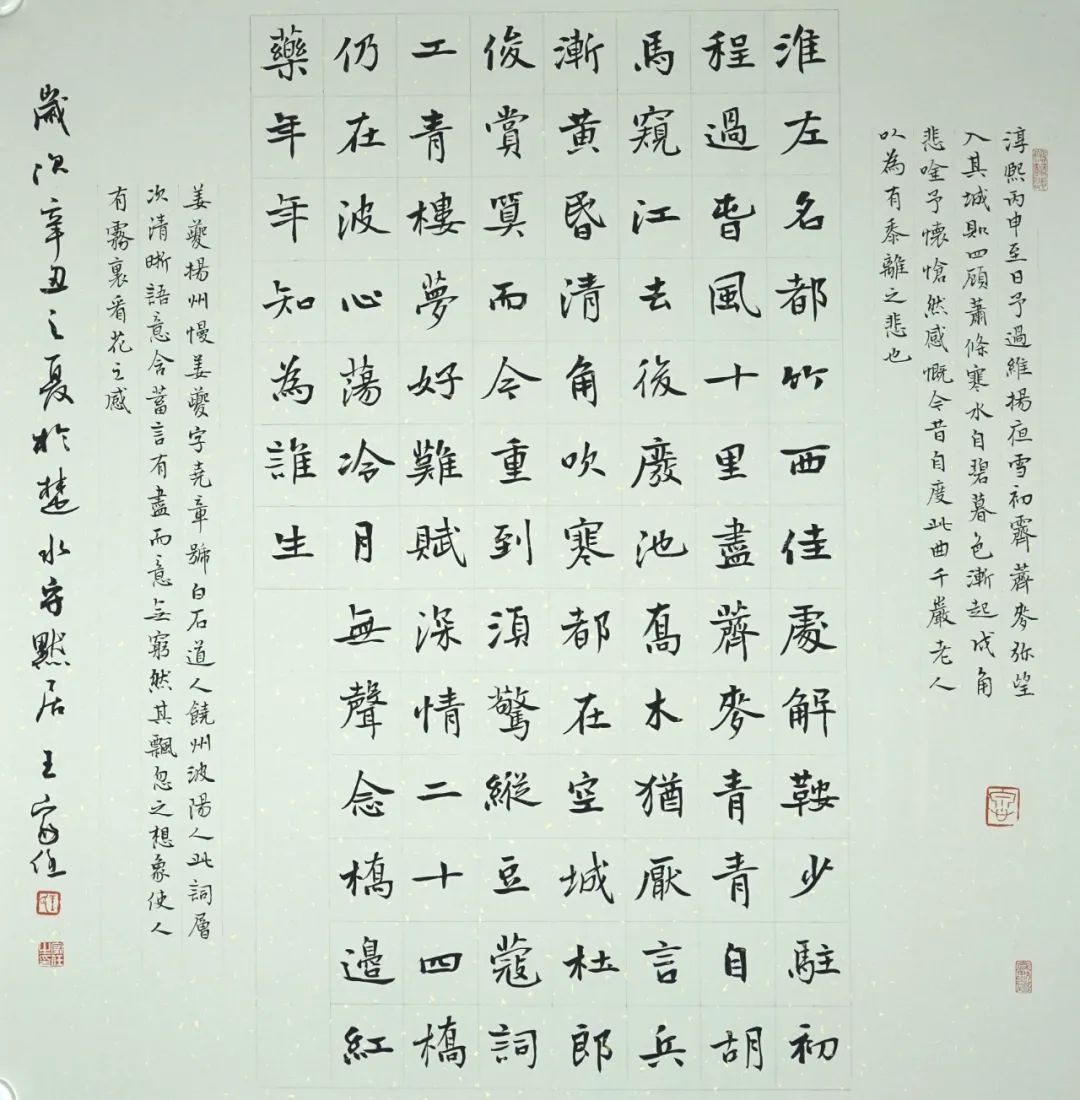 淳熙丙申至日予過維揚夜雪初霽薺麥弥望
入其城則四顧蕭條寒水自碧暮色漸起戍角
悲唫予懷愴然感慨今昔自度此曲千巖老人
以為有黍離之悲也
淮左名都竹西佳處解鞍少駐初
程過春風十里盡薺麥青青自胡
馬窺江去後廢池喬木猶厭言兵
漸黄昏清角吹寒都在空城杜郎
俊賞算而今重到須驚縱豆蔻詞
工青樓夢好難賦深情二十四橋
仍在波心蕩冷月無聲念橋邊紅
藥年年知為誰生
姜夔揚州慢姜夔字堯章號白石道人饒州波陽人此詞層
次清晰語意含蓄言有盡而意無窮然其飄忽之想象使人
有霧裏看花之感
歲次辛丑之夏於楚水守默居 王